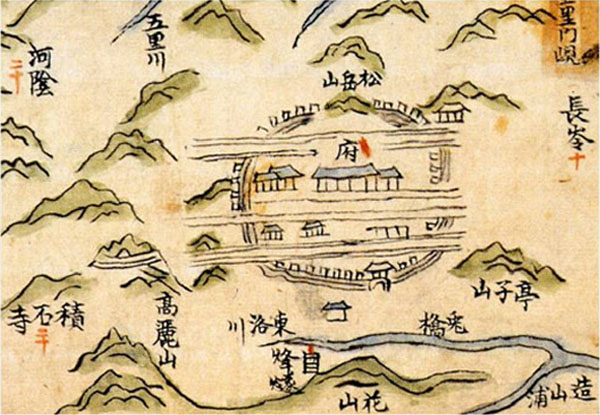 里門峴
長岺
十
五里川
河陰
二十
松岳山
府
亭子山
高麗山
積石寺
東洛川
兎橋
烽燧
花山
造山浦